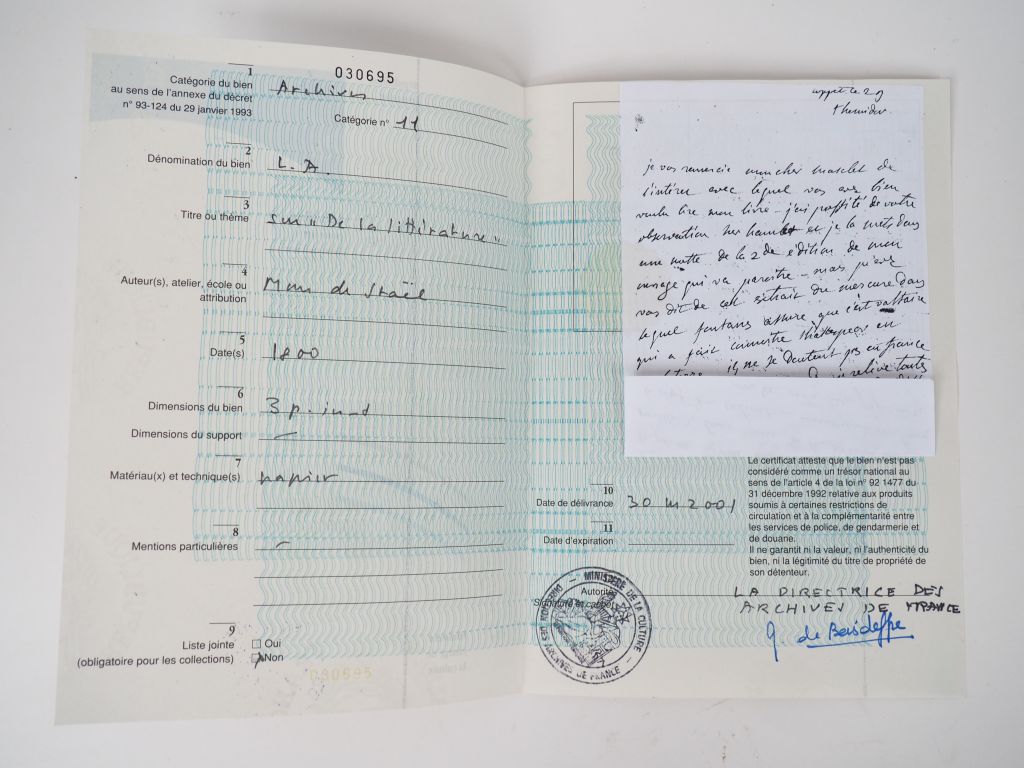 030695
1
Catégorie du bien
au sens de l'annexe du décret
n° 93-124 du 29 janvier 1993
Archives
Catégorie n° 11
2
Dénomination du bien
L.A.
3
Titre ou thème
sur "De la littérature"
4
Auteur(s), atelier, école ou
attribution
Mme de Staël
5
Date(s)
1800
6
Dimensions du bien
3 p. in-4
Dimensions du support
7
Matériau(x) et technique(s)
papier
8
Mentions particulières
9
Liste jointe
(obligatoire pour les collections)
Oui
Non
030695
ce 29
thermidor
je vous remercie mon cher masclet de
l'intérêt avec lequel vous avez bien
voulu lire mon livre - j'ai profité de votre
observation sur hamlet et je la mets dans
une notte de la 2de édition de mon
ouvrage qui va paroitre - mais
vous dit de cet extrait du mercure dans
lequel fontanes assure que c'est voltaire
qui a fait connoitre Shakespear en
ils ne se doutent pas en france
relève toutes
Le certificat atteste que le bien n'est pas
considéré comme un trésor national au
sens de l'article 4 de la loi n° 92 1477 du
31 décembre 1992 relative aux produits
soumis à certaines restrictions de
circulation et à la complémentarité entre
les services de police, de gendarmerie et
de douane.
Il ne garantit ni la valeur, ni l'authenticité du
bien, ni la légitimité du titre de propriété de
son détenteur.
10
Date de délivrance
30 2001
11
Date d'expiration
Autorité
Signature et cachet
MINISTERE DE LA CULTURE
DIRECTION DES ARCHIVES DE FRANCE
LA DIRECTRICE DES
ARCHIVES DE FRANCE
de Boisdeffre